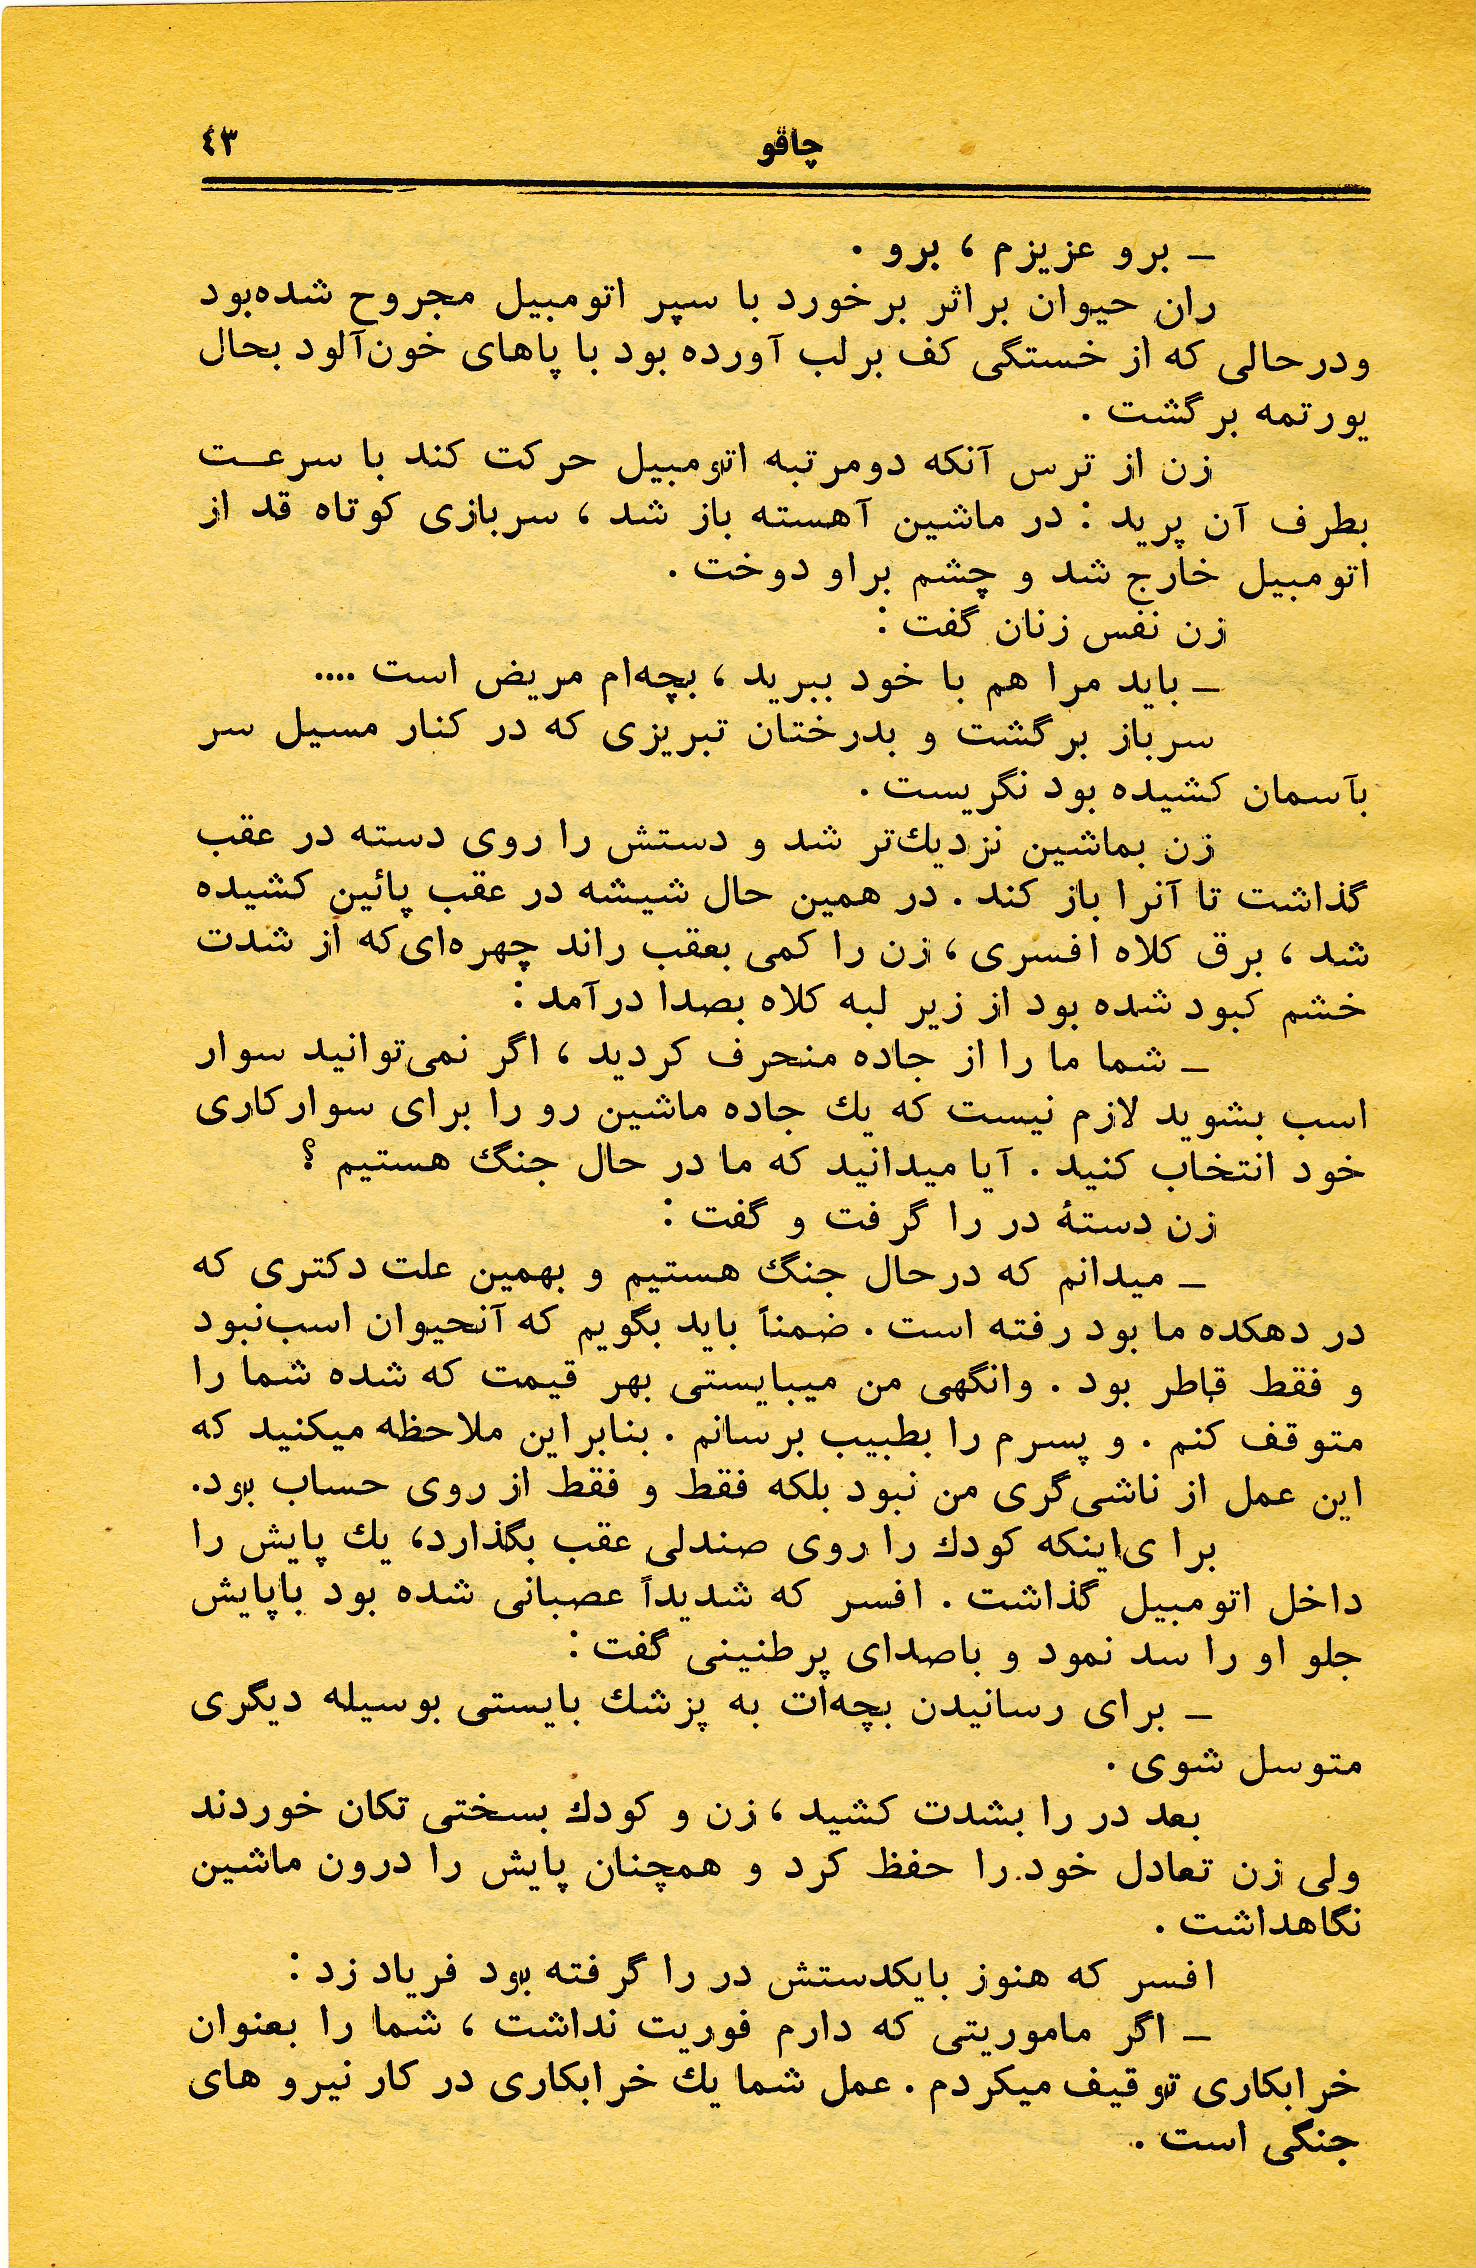 چاقو ٤٣
ـ برو عزیزم ، برو .
ران حیوان براثر برخورد با سپر اتومبیل مجروح شده‌بود
ودرحالی که از خستگی کف برلب آورده بود با پاهای خون‌آلود بحال
یورتمه برگشت .
زن از ترس آنکه دومرتبه اتومبیل حرکت کند با سرعت
بطرف آن پرید : در ماشین آهسته باز شد ، سربازی کوتاه قد از
اتومبیل خارج شد و چشم براو دوخت .
زن نفس زنان گفت :
ـ باید مرا هم با خود ببرید ، بچه‌ام مریض است ....
سرباز برگشت و بدرختان تبریزی که در کنار مسیل سر
بآسمان کشیده بود نگریست .
زن بماشین نزدیك‌تر شد و دستش را روی دسته در عقب
گذاشت تا آنرا باز کند . در همین حال شیشه در عقب پائین کشیده
شد ، برق کلاه افسری ، زن را کمی بعقب راند چهره‌ای‌که از شدت
خشم کبود شده بود از زیر لبه کلاه بصدا درآمد :
ـ شما ما را از جاده منحرف کردید ، اگر نمی‌توانید سوار
اسب بشوید لازم نیست که یك جاده ماشین رو را برای سوارکاری
خود انتخاب کنید . آیا میدانید که ما در حال جنگ هستیم ؟
زن دستهٔ در را گرفت و گفت :
ـ میدانم که درحال جنگ هستیم و بهمین علت دکتری که
در دهکده ما بود رفته است . ضمناً باید بگویم که آنحیوان اسب‌نبود
و فقط قاطر بود . وانگهی من میبایستی بهر قیمت که شده شما را
متوقف کنم . و پسرم را بطبیب برسانم . بنابراین ملاحظه میکنید که
این عمل از ناشی‌گری من نبود بلکه فقط و فقط از روی حساب بود.
برا ی‌اینکه کودك را روی صندلی عقب بگذارد، یك پایش را
داخل اتومبیل گذاشت . افسر که شدیداً عصبانی شده بود باپایش
جلو او را سد نمود و باصدای پرطنینی گفت :
ـ برای رسانیدن بچه‌ات به پزشك بایستی بوسیله دیگری
متوسل شوی .
بعد در را بشدت کشید ، زن و کودك بسختی تکان خوردند
ولی زن تعادل خود را حفظ کرد و همچنان پایش را درون ماشین
نگاهداشت .
افسر که هنوز بایکدستش در را گرفته بود فریاد زد :
ـ اگر ماموریتی که دارم فوریت نداشت ، شما را بعنوان
خرابکاری توقیف میکردم . عمل شما یك خرابکاری در کار نیرو های
جنگی است .